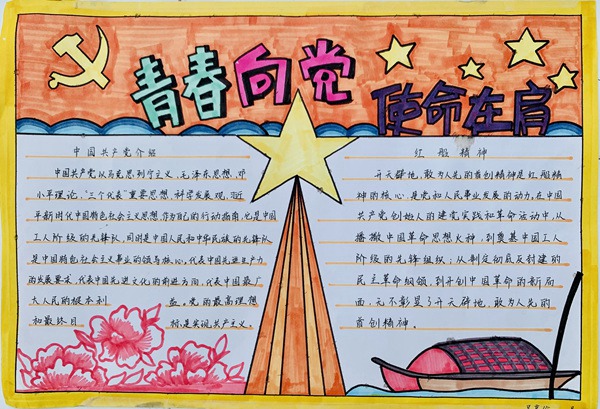 青春向党
使命在肩
中国共产党介绍
中国共产党以马克思列宁主义、毛泽东思想、邓
小平理论、"三个代表"重要思想、科学发展观、习近
平新时代中国特色社会主义思想,作为自己的行动指南,它是中国
工人阶级的先锋队,同时是中国人民和中华民族的先锋队
是中国特色社会主义事业的领导核心,代表中国先进生产力
的发展要求,代表中国先进文化的前进方向,代表中国最广
大人民的根本利 益。党的最高理想
和最终目 标,是实现共产主义。
红船精神
开天辟地、敢为人先的首创精神是红船精
神的核心,是党和人民事业发展的动力,在中国
共产党创始人的建党实践和革命活动中,从
播撒中国革命思想火种,到奠基中国工人
阶级的先锋组织;从制定彻底反封建的
民主革命纲领,到开创中国革命的新局
面,无不彰显了开天辟地、敢为人先的
首创精神。